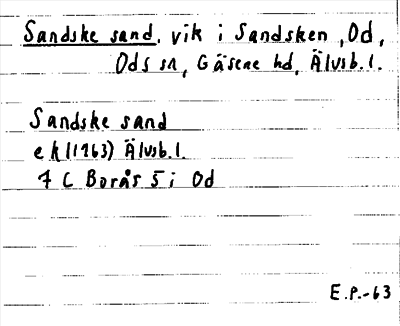 Sandske sand, vik i Sandsken, Od,
Ods sn, Gäsene hd, Älvsb.l.
Sandske sand
ek (1963) Älvsb.l.
7 C Borås 5 i Od
E.P.-63